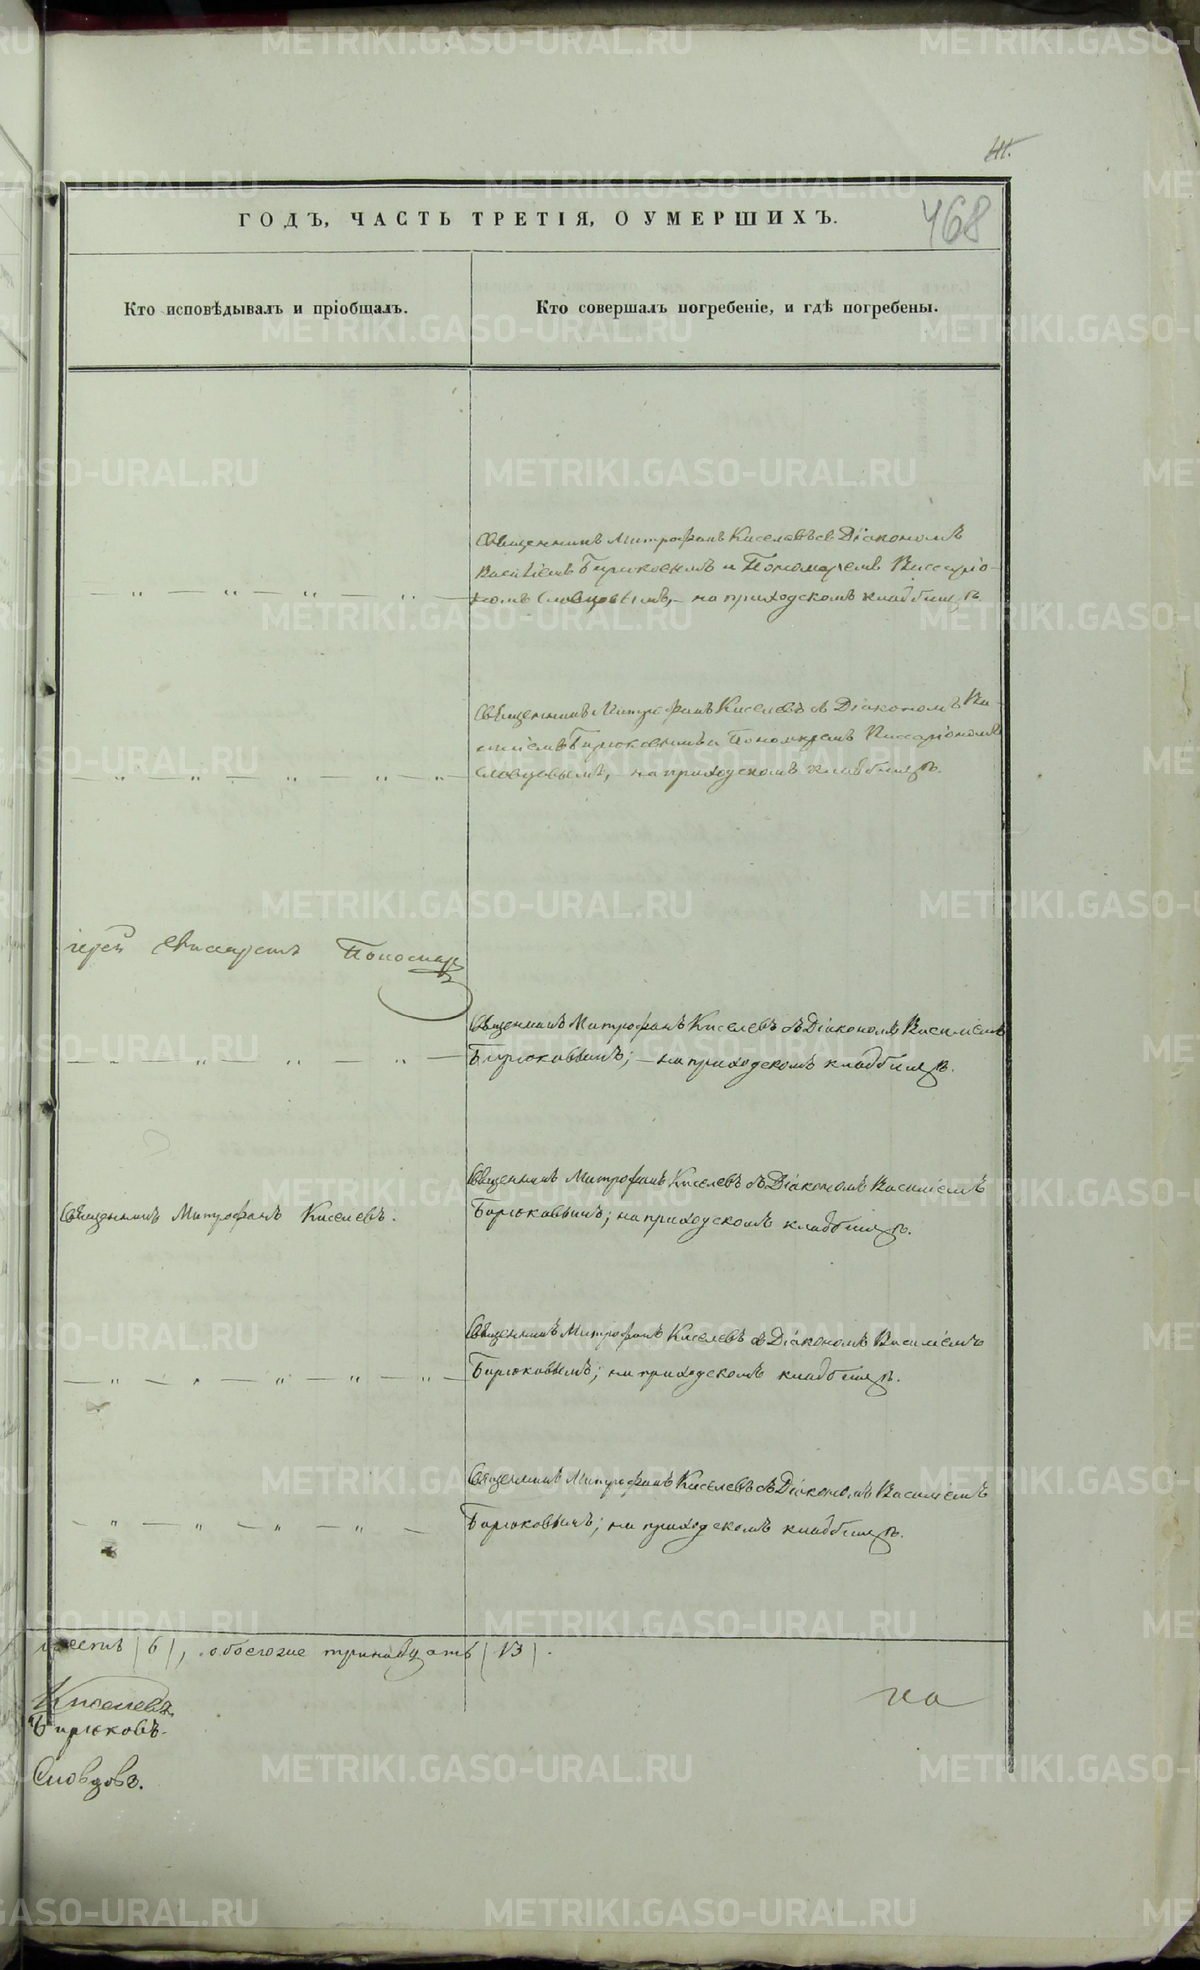 41.
ГОДЪ, ЧАСТЬ ТРЕТІЯ, О УМЕРШИХЪ.
468
Кто исповѣдывалъ и пріобщалъ.
Кто совершалъ погребеніе, и гдѣ погребены.
Священникъ Митрофанъ Киселевъ съ Діакономъ
Василіемъ Бирюковымъ и Пономаремъ Виссаріо-
номъ Словцовымъ, – на приходскомъ кладбищѣ
Священникъ Митрофанъ Киселевъ съ Діакономъ Ва-
силіемъ Бирюковымъ и Пономаремъ Виссаріономъ
Словцовымъ, – на приходскомъ кладбищѣ.
іерей Пономар
Священникъ Митрофанъ Киселевъ съ Діакономъ Василіемъ
Бирюковымъ; – на приходскомъ кладбищѣ.
Священникъ Митрофанъ Киселевъ.
Священникъ Митрофанъ Киселевъ съ Діакономъ Василіемъ
Бирюковымъ; на приходскомъ кладбищѣ.
Священникъ Митрофанъ Киселевъ съ Діакономъ Василіемъ
Бирюковымъ; на приходскомъ кладбищѣ.
Священникъ Митрофанъ Киселевъ съ Діакономъ Василіемъ
Бирюковымъ; на приходскомъ кладбищѣ.
шесть (6), обоегоже тринадцать (13).
Киселевъ
Бирюковъ.
Словцовъ.
на
METRIKI.GASO-URAL.RU